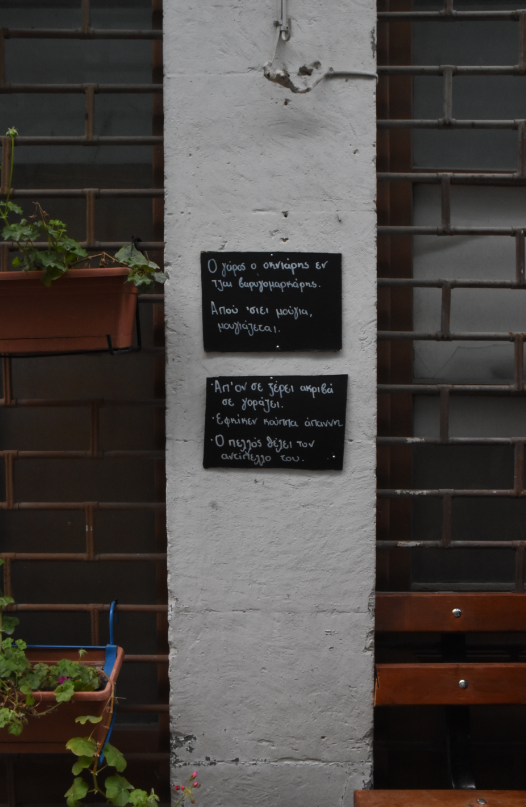 Ο γάρος ο οκνιάρης εν
τζαι βαρυγομαρκάρης.
Απού 'σιει μούγια,
μουγιάζεται.
·Απ'ον σε ξέρει ακριβά
σε γοράζει.
·Εφκήκεν κούππα άπαννη
·Ο πελλός θέλει τον
αντίπελλο του.